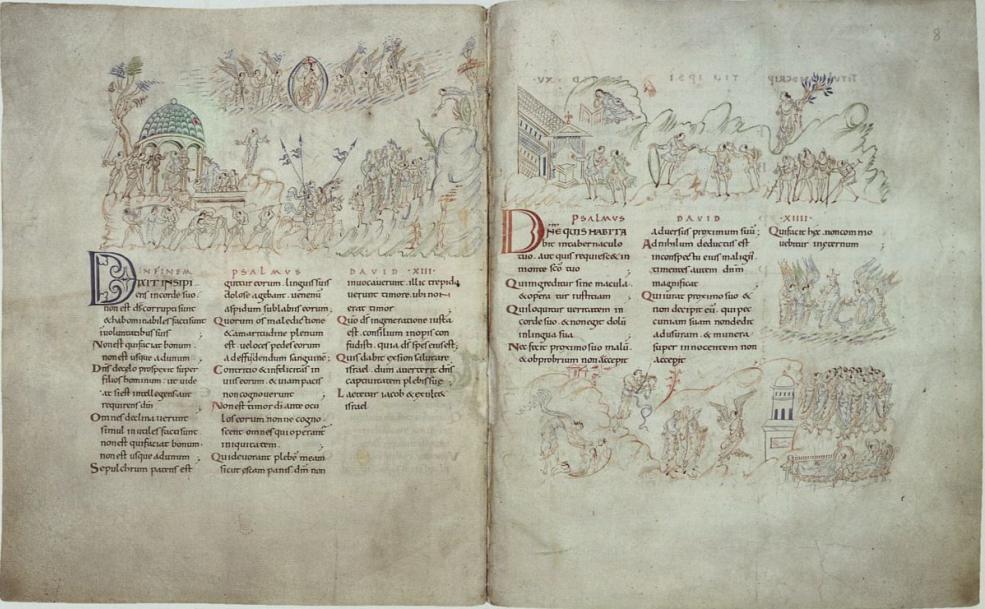 8
INFINEM PSALMUS DAVID ·XIII·
DIXIT INSIPI
ens incorde suo·
non est ds corrupti sunt
& abominabiles facti sunt
Non est qui faciat bonum·
non est usque adunum·
Dns decelo prospexit super
filios hominum· ut uide
at si est intellegens aut
requirens dm
Omnes declinauerunt
simul inutiles facti sunt
non est qui faciat bonum·
non est usque adunum·
Sepulchrum patens est
guttur eorum· linguis suis
dolose agebant· uenenu
aspidum sub labiis eorum·
Quorum os maledictione
& amaritudine plenum
est· ueloces pedes eorum
adeffundendum sanguine·
Contritio & infelicitas in
uiis eorum· & uiam pacis
non cognouerunt
Non est timor di ante ocu
los eorum· nonne cogno
scent omnes qui operant
iniquitatem·
Qui deuorant plebe meam
sicut escam panis· dm non
inuocauerunt· illic trepida
uerunt timore· ubi non
erat timor
Qūo ds ingeneratione iusta
est· consilium inopis con
fudistis· quia ds spes eius est·
Quis dabit exsion salutare
israel· dum auerterit dns
captiuitatem plebis suę
Laetetur iacob & exultet
israel
PSALMUS DAVID ·XIIII·
DNE QUIS HABITA
bit intabernaculo
tuo· aut quis requiescet in
monte sco tuo
Qui ingreditur sine macula·
& opera tur iustitiam
Qui loquitur ueritatem in
corde suo· & non egit dolū
inlingua sua·
Nec fecit proximo suo malū·
& obprobrium non accepit
aduersus proximum suū·
Ad nihilum deductus est
inconspectu eius malign
timentes autem dnm
magnificat
Qui iurat proximo suo &
non decipit eū· qui pec
cuniam suam non dedit
adusuram· & munera
super innocentem non
accepit
Qui facit hęc· non commo
uebitur in&ernum